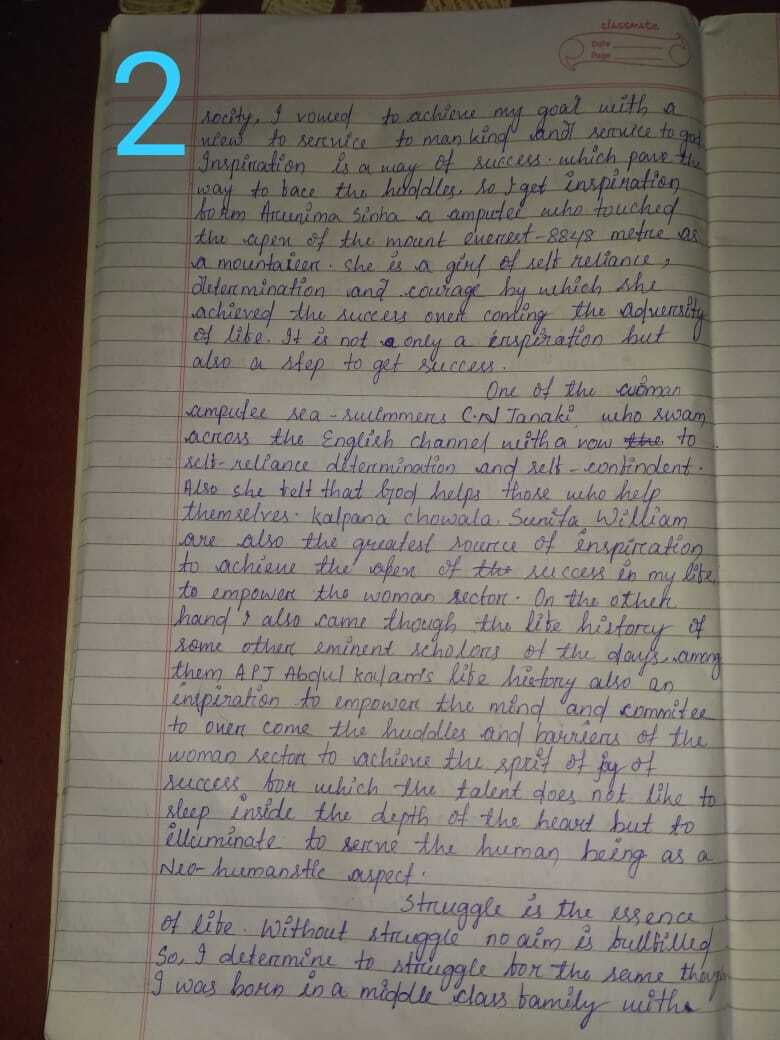 classmate
Date
Page
2
socity, I vowed to achieve my goal with a
view to service to man kind and service to god
Inspiration is a way of success. which pave the
way to face the huddles, so I get inspiration
form Arunima Sinha a amputee who touched
the apex of the mount everest-8848 metre as
a mountaieer. she is a girl of self reliance,
determination and courage by which she
achieved the success over coming the adversity
of life. It is not a only a inspiration but
also a step to get success.
One of the woman
amputee sea-swimmers C.N Janaki, who swam
across the English channel with a vow the to
self-reliance determination and self-contindent.
Also she felt that God helps those who help
themselves. Kalpana chowala, Sunita William
are also the greatest source of inspiration
to achieve the apex of the success in my life,
to empower the woman sector. On the other
hand I also came though the life history of
some other eminent scholors of the days, among
them APJ Abdul Kalam's life history also an
inspiration to empower the mind and commitee
to over come the huddles and barriers of the
woman sector to achieve the sprit of joy of
success for which the talent does not like to
sleep inside the depth of the heart but to
illuminate to serve the human being as a
Neo-humanstic aspect.
Struggle is the essence
of life. Without struggle no aim is fullfilled
So, I determine to struggle for the same though
I was born in a middle class family with